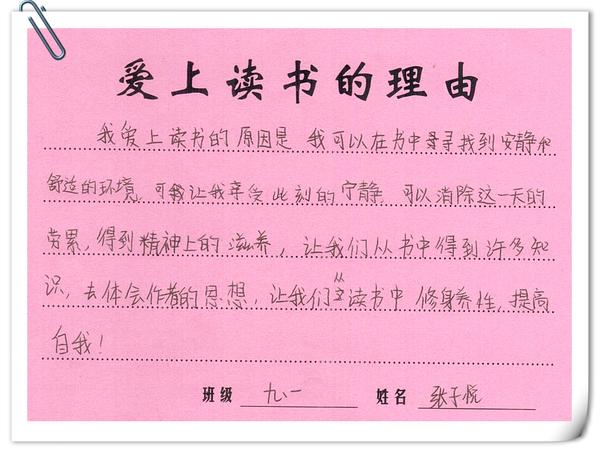 爱上读书的理由
我爱上读书的原因是 我可以在书中寻找到安静和
舒适的环境,可让我享受此刻的宁静 可以消除这一天的
劳累,得到精神上的滋养,让我们从书中得到许多知
识,去体会作者的思想,让我们从读书中 修身养性,提高
自我!
班级 九.一 姓名 张子悦